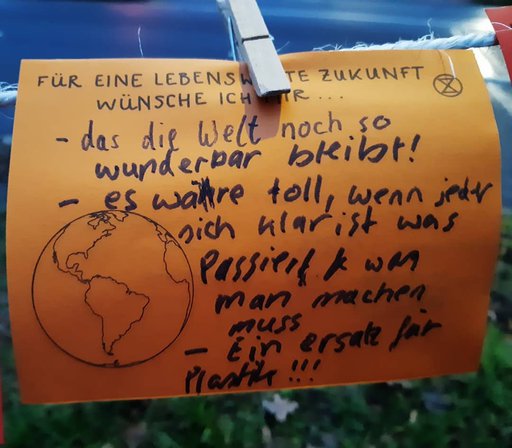 FÜR EINE LEBENSWERTE ZUKUNFT
WÜNSCHE ICH MIR ...
- das die Welt noch so
wunderbar bleibt!
- es währe toll, wenn jeder
sich klar ist was
Passiert & was
man machen
muss
- Ein ersatz für
Plastik!!!